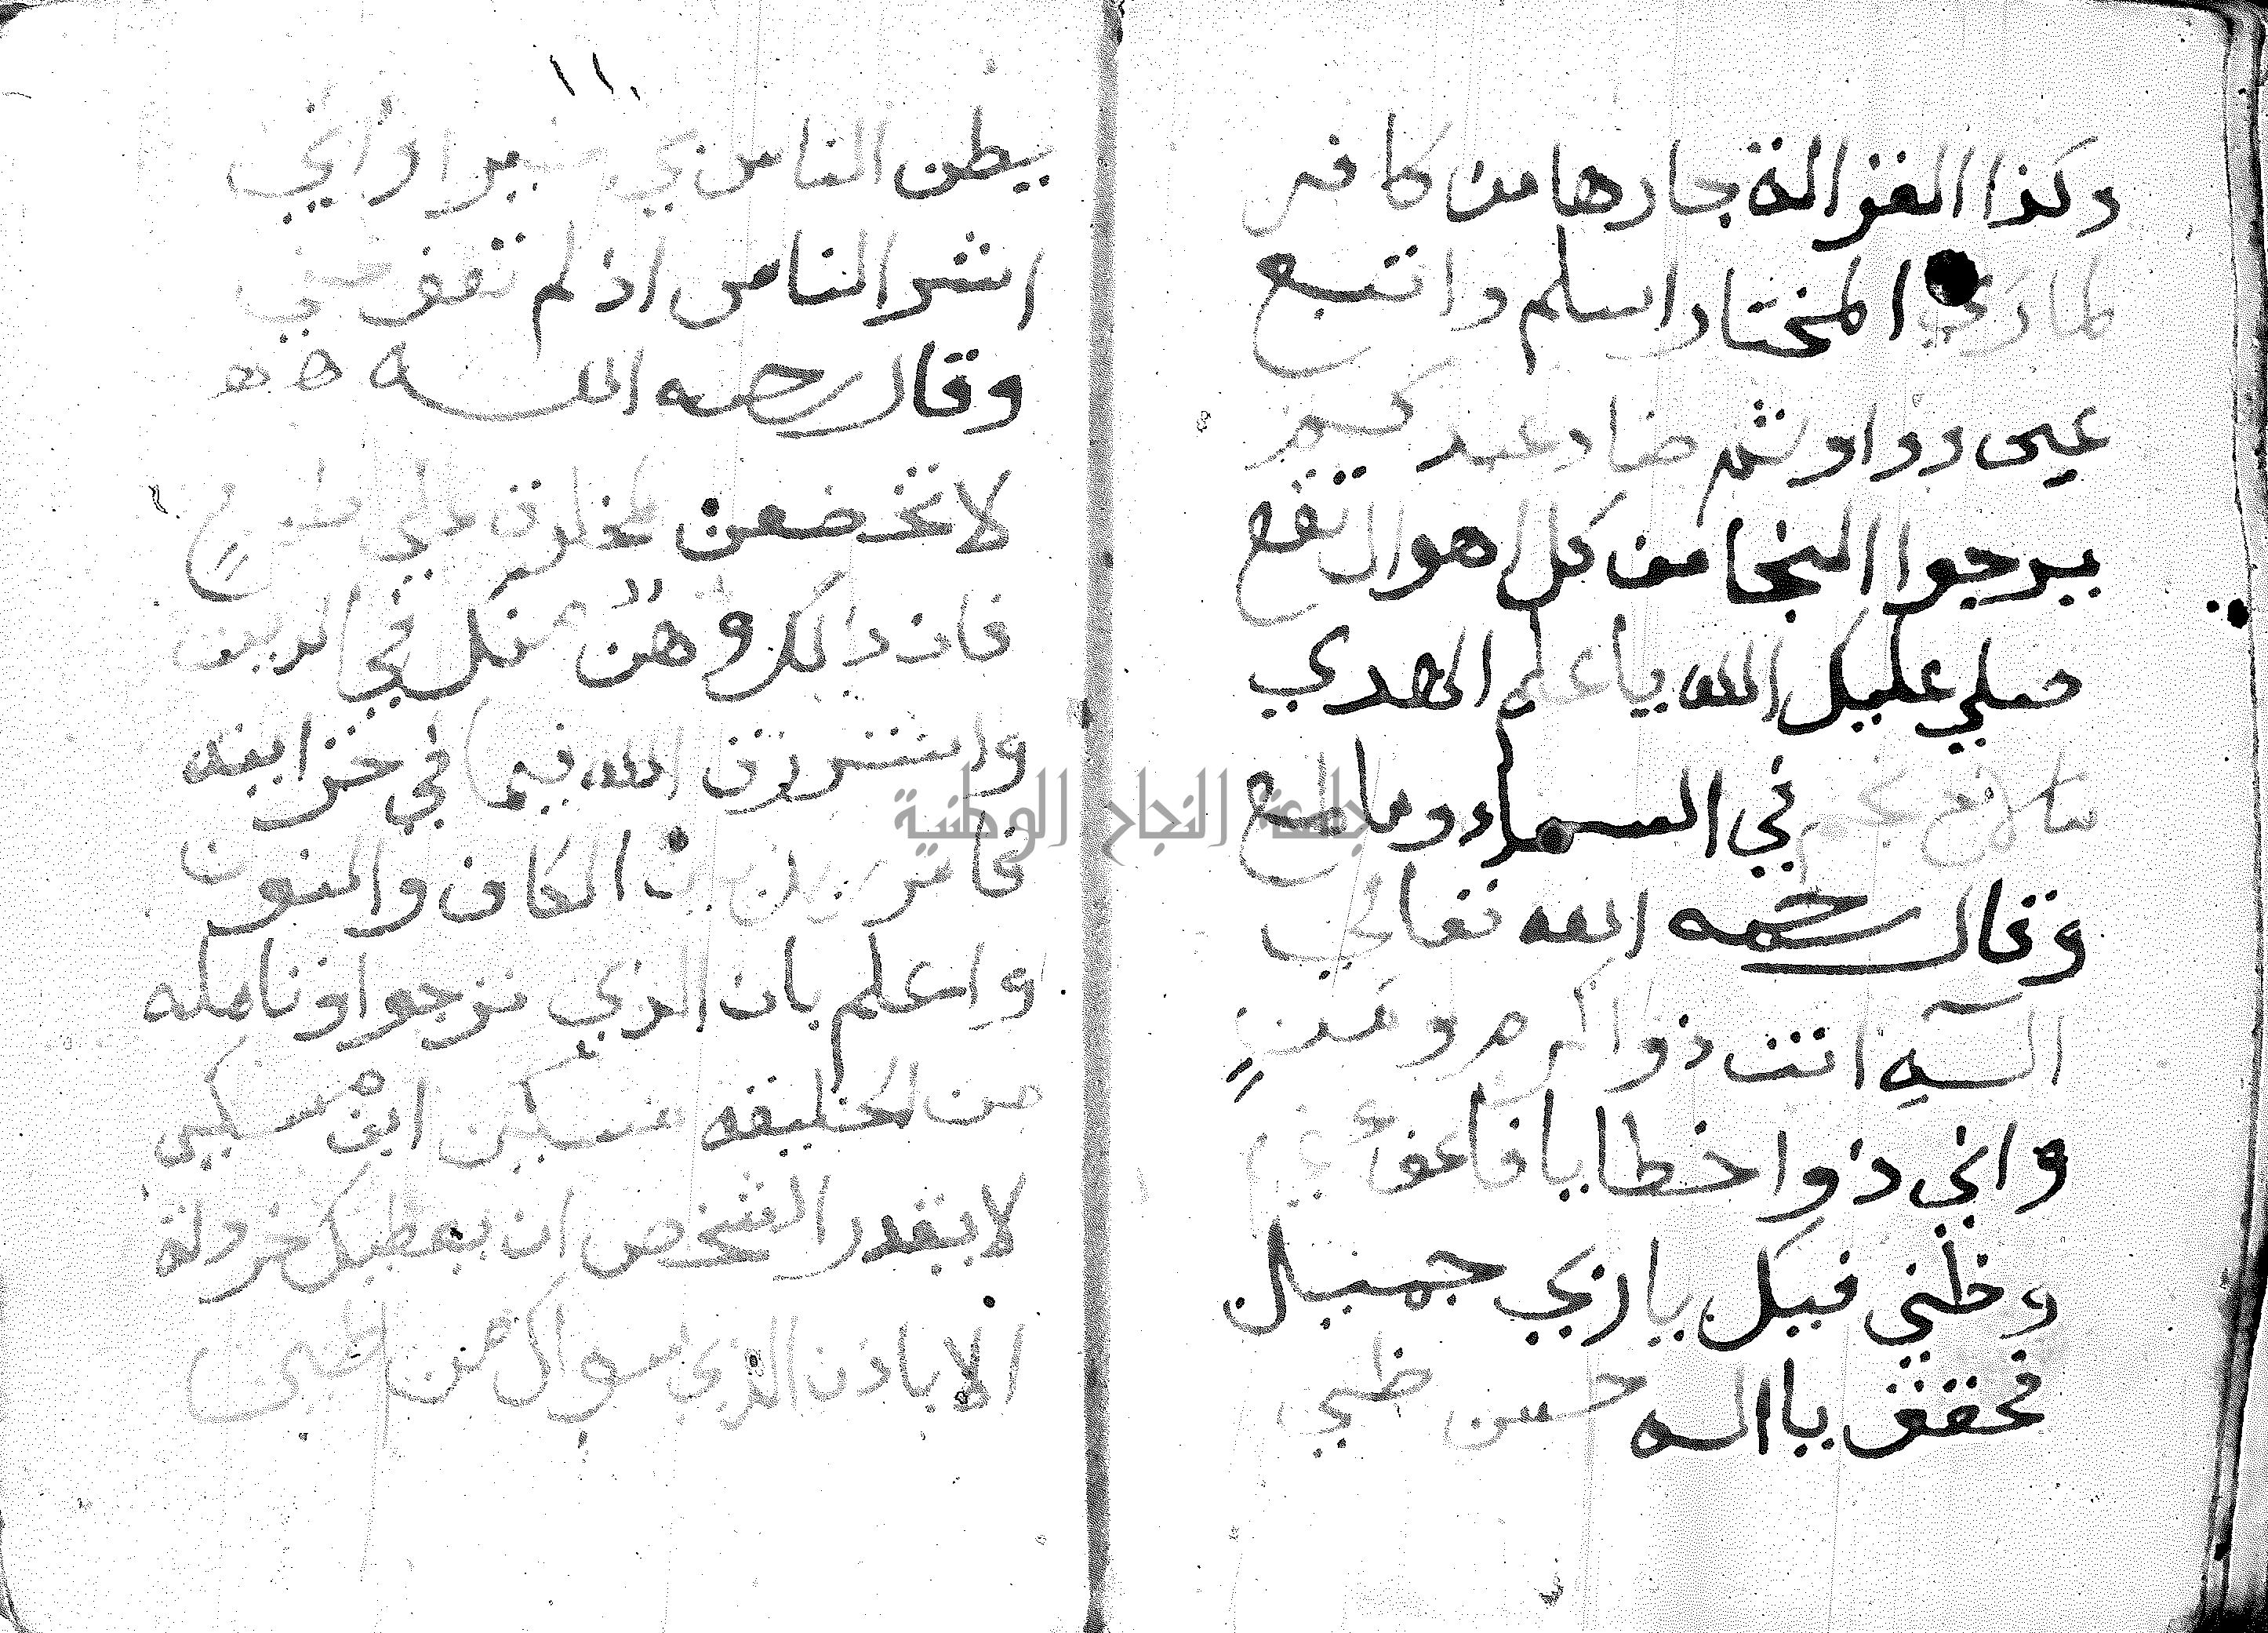 وكذا الغزالة جارها من كافر
لما رءي المختار اسلم واتبع
عيى وواو ثم ضاد عبد كم
يرجوا النجا من كل اهوال تقع
صلي عليك الله يا علم الهدي
ما لاح نجم في السماء وما لمع
وقال رحمه الله تعالي
الهي انت ذوا كرم ومن
واني ذوا خطايا فاعف عني
وظني فيك يا ربي جميل
فحقق يا اله حسن ظني
١١٠
يظن الناس بي خيرا واني
اشر الناس اذ لم تعف عني
وقال رحمه الله
لا تخضعن لمخلوق علي طمع
فان ذالك وهن منك في الدين
واسترزق الله فيما في خزاينه
فامر بين الكاف والنون
واعلم بان الذي ترجوا وتامله
من الخليقه مسكين ابن مسكين
لا يقدر الشخص ان يعطيك خردلة
الا باذن الذي سواك من طين
جامعة النجاح الوطنية